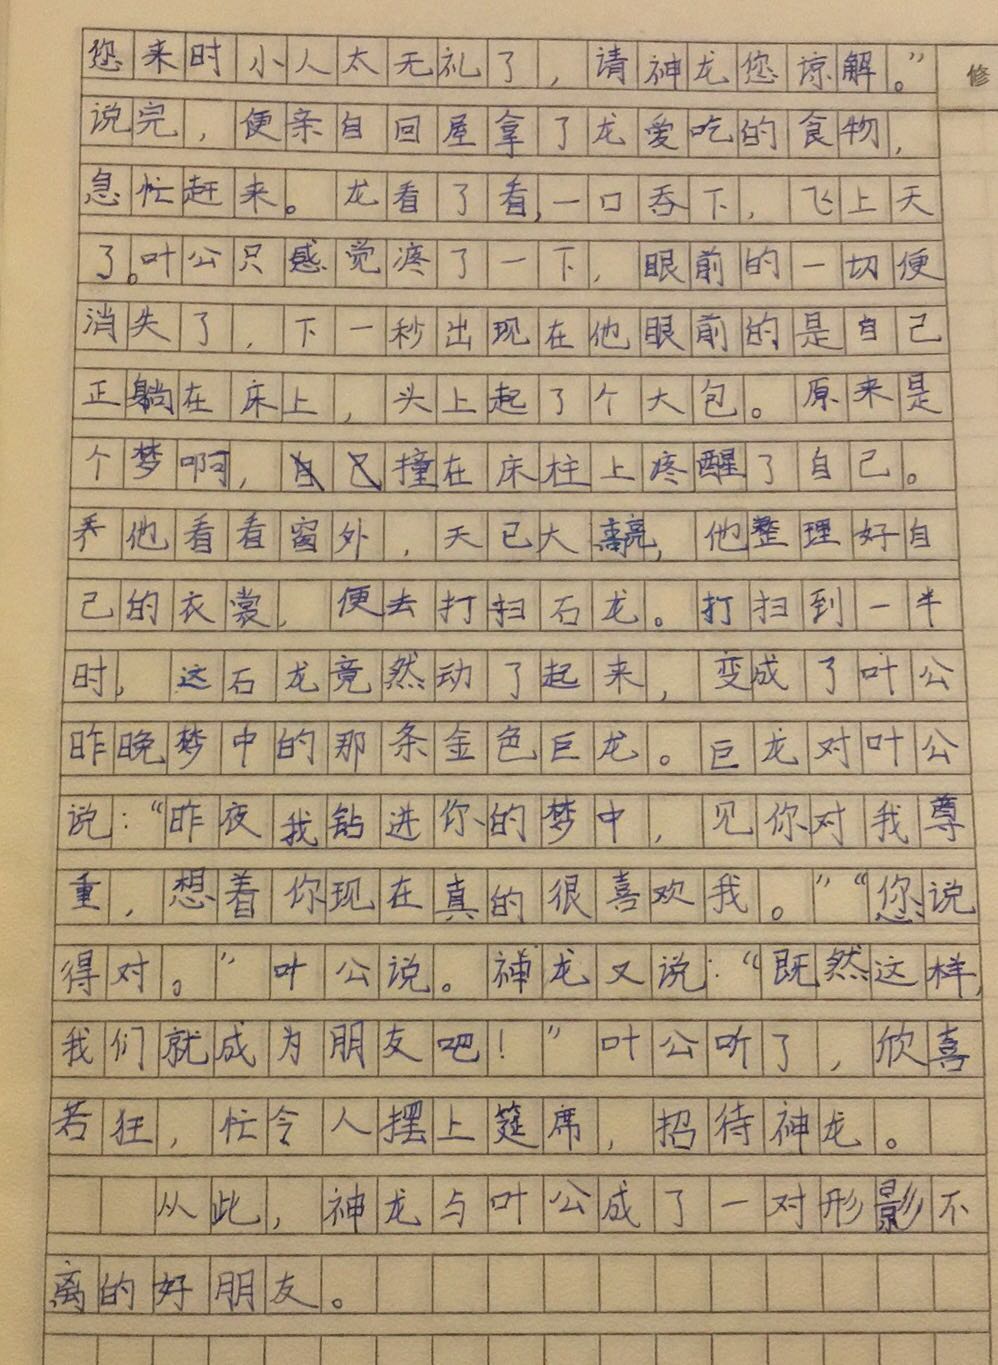 您来时小人太无礼了，请神龙您谅解。”
修
说完，便亲自回屋拿了龙爱吃的食物，
急忙赶来。龙看了看，一口吞下，飞上天
了。叶公只感觉疼了一下，眼前的一切便
消失了，下一秒出现在他眼前的是自己
正躺在床上，头上起了个大包。原来是
个梦啊，撞在床柱上疼醒了自己。
他看看窗外，天已大亮，他整理好自
己的衣裳，便去打扫石龙。打扫到一半
时，这石龙竟然动了起来，变成了叶公
昨晚梦中的那条金色巨龙。巨龙对叶公
说：“昨夜我钻进你的梦中，见你对我尊
重，想着你现在真的很喜欢我。”“您说
得对。”叶公说。神龙又说：“既然这样，
我们就成为朋友吧！”叶公听了，欣喜
若狂，忙令人摆上筵席，招待神龙。
从此，神龙与叶公成了一对形影不
离的好朋友。